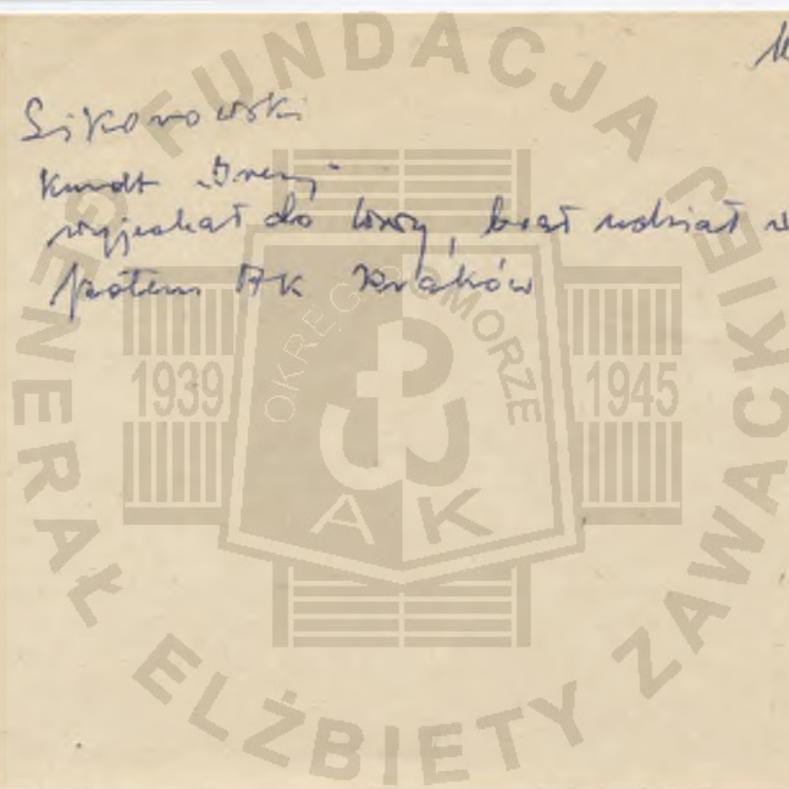 Sikorowski
wyjechał do brał udział
potem AK Kraków
FUNDACJA GENERAŁ ELŻBIETY ZAWACKIEJ
OKRĘG POMORZE
1939 1945
AK